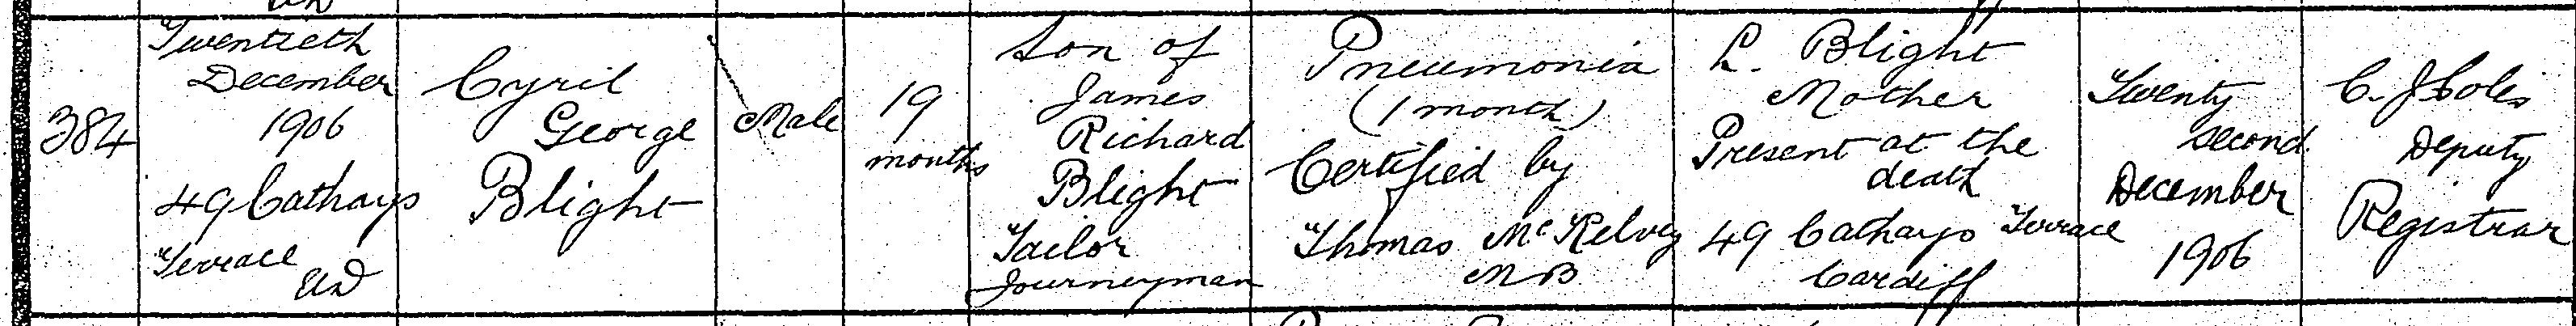 384
Twentieth
December
1906
49 Cathays
Terrace
UD
Cyril
George
Blight
Male
19
months
Son of
James
Richard
Blight
Tailor
Journeyman
Pneumonia
(1 month)
Certified by
Thomas McKelvey
MB
L. Blight
Mother
Present at the
death
49 Cathays Terrace
Cardiff
Twenty
second
December
1906
C. J. Coles
Deputy
Registrar